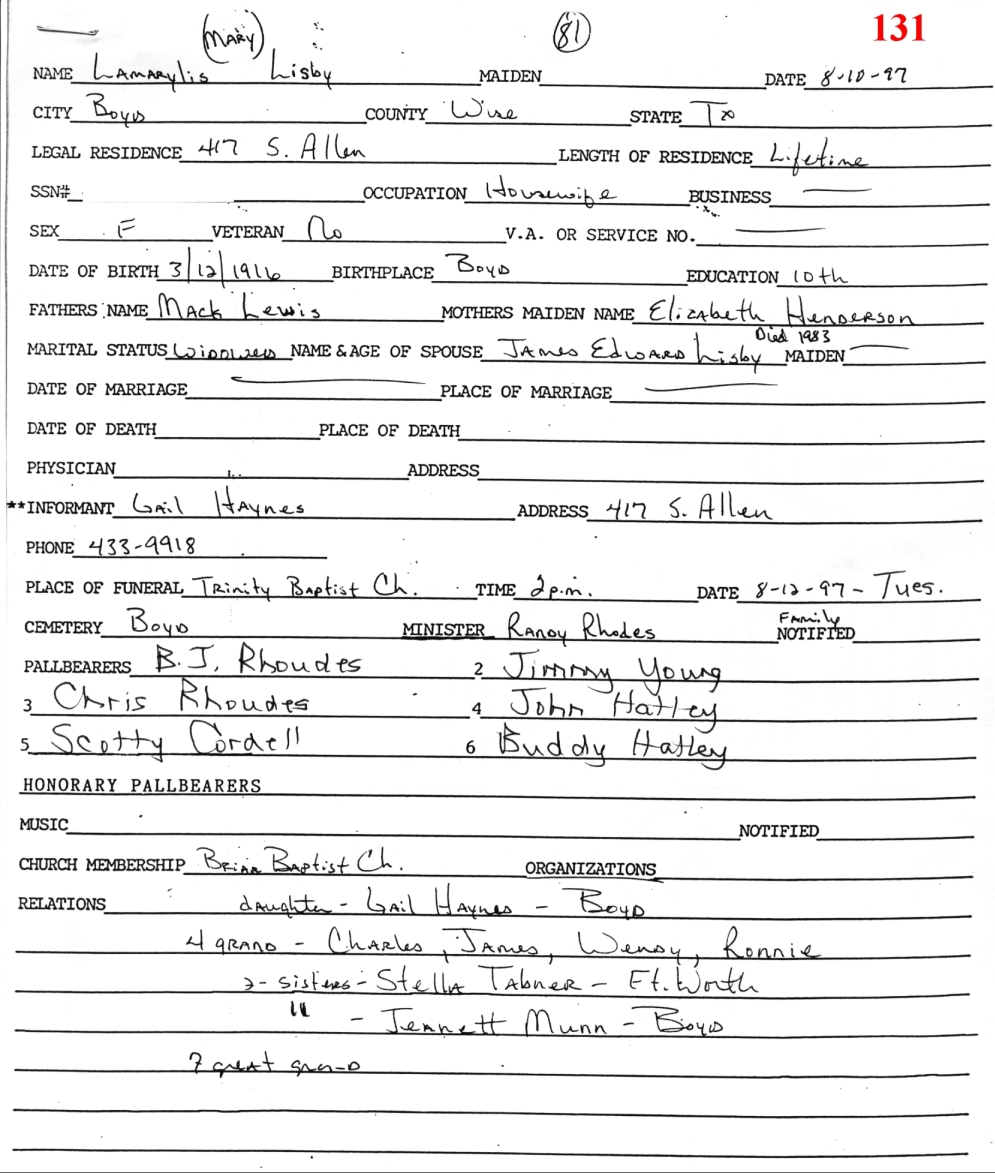 (MARY) (81) 131
NAME Lamarylis Lisby MAIDEN DATE 8-10-97
CITY Boyd COUNTY Wise STATE Tx
LEGAL RESIDENCE 417 S. Allen LENGTH OF RESIDENCE Lifetime
SSN# OCCUPATION Housewife BUSINESS
SEX F VETERAN No V.A. OR SERVICE NO.
DATE OF BIRTH 3/12/1916 BIRTHPLACE Boyd EDUCATION 10th
FATHERS NAME Mack Lewis MOTHERS MAIDEN NAME Elizabeth Henderson
Died 1983
MARITAL STATUS Widowed NAME & AGE OF SPOUSE James Edward Lisby MAIDEN
DATE OF MARRIAGE PLACE OF MARRIAGE
DATE OF DEATH PLACE OF DEATH
PHYSICIAN ADDRESS
**INFORMANT Gail Haynes ADDRESS 417 S. Allen
PHONE 433-9918
PLACE OF FUNERAL Trinity Baptist Ch. TIME 2p.m. DATE 8-12-97 - Tues.
Family
CEMETERY Boyd MINISTER Randy Rhodes NOTIFIED
PALLBEARERS B.J. Rhoudes 2 Jimmy Young
3 Chris Rhoudes 4 John Hatley
5 Scotty Cordell 6 Buddy Hatley
HONORARY PALLBEARERS
MUSIC NOTIFIED
CHURCH MEMBERSHIP Briar Baptist Ch. ORGANIZATIONS
RELATIONS daughter - Gail Haynes - Boyd
4 grand - Charles, James, Wendy, Ronnie
2 - sisters - Stella Tabner - Ft. Worth
" - Jennett Munn - Boyd
7 great grand